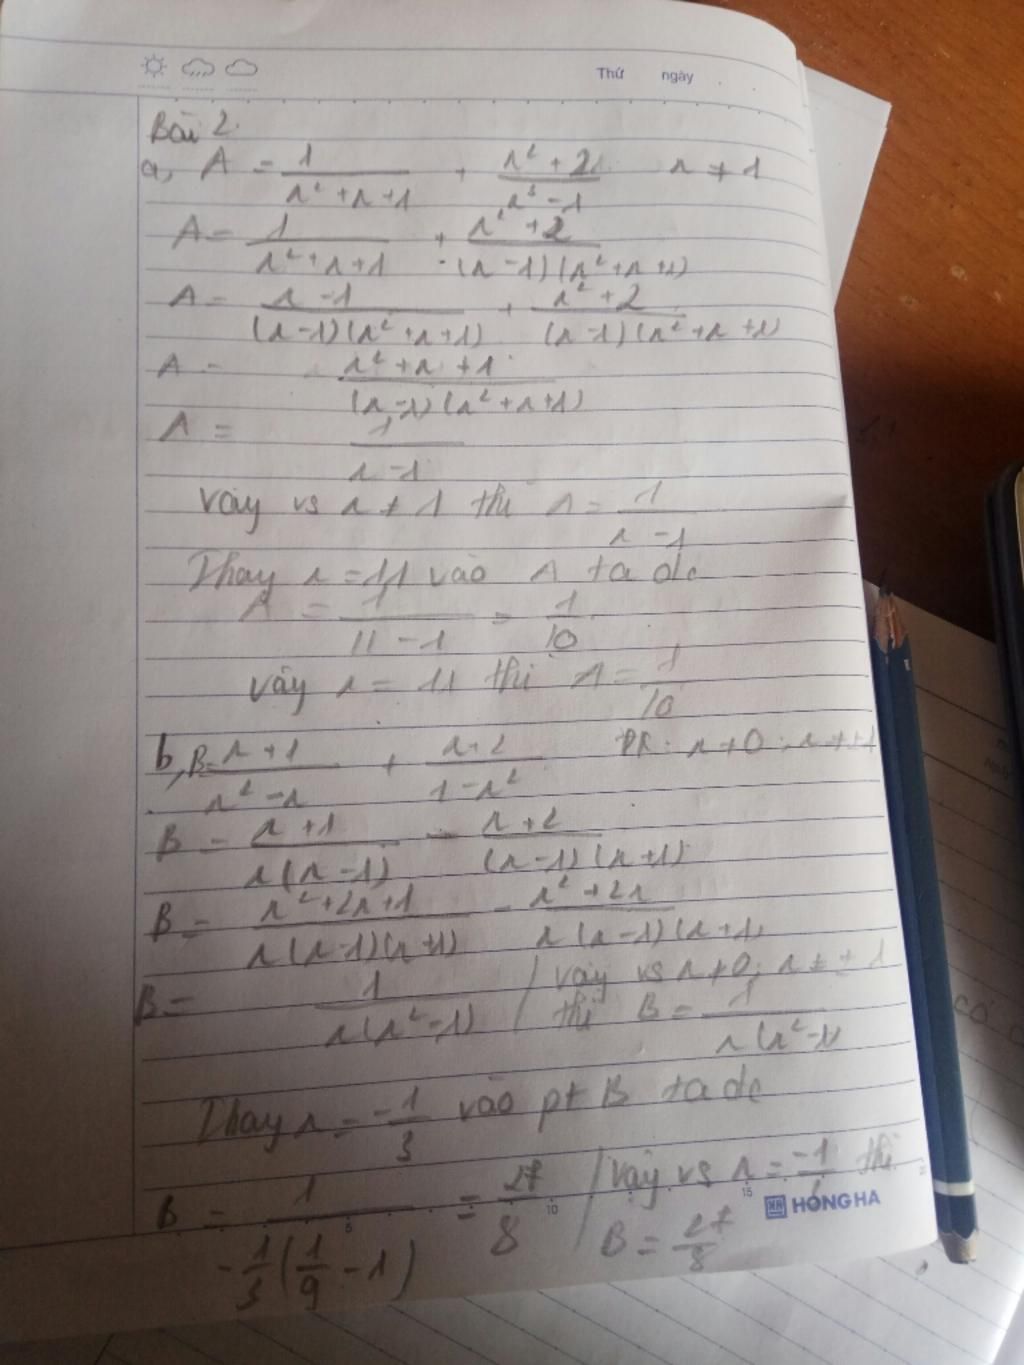 Thứ ngày
Bài 2
a, A = 1/(x² + x + 1) + (x² + 2)/(x³ - 1) x ≠ 1
A = 1/(x² + x + 1) + (x² + 2)/((x - 1)(x² + x + 1))
A = (x - 1)/((x - 1)(x² + x + 1)) + (x² + 2)/((x - 1)(x² + x + 1))
A = (x² + x + 1)/((x - 1)(x² + x + 1))
A = 1/(x - 1)
Vậy vs x ≠ 1 thì A = 1/(x - 1)
Thay x = 11 vào A ta dc
A = 1/(11 - 1) = 1/10
vậy x = 11 thì A = 1/10
b, B = (x + 1)/(x² - x) + (x + 2)/(1 - x²) : x ≠ 0 ; x ≠ ±1
B = (x + 1)/(x(x - 1)) - (x + 2)/((x - 1)(x + 1))
B = (x² + 2x + 1)/(x(x - 1)(x + 1)) - (x² + 2x)/(x(x - 1)(x + 1))
B = 1/(x(x² - 1)) / Vậy vs x ≠ 0 ; x ≠ ± 1
thì B = 1/(x(x² - 1))
Thay x = -1/3 vào pt B ta dc
B = 1/(-1/3(1/9 - 1)) = 27/8 / vậy vs x = thì
B = 27/8
5 10 15
HỒNG HÀ